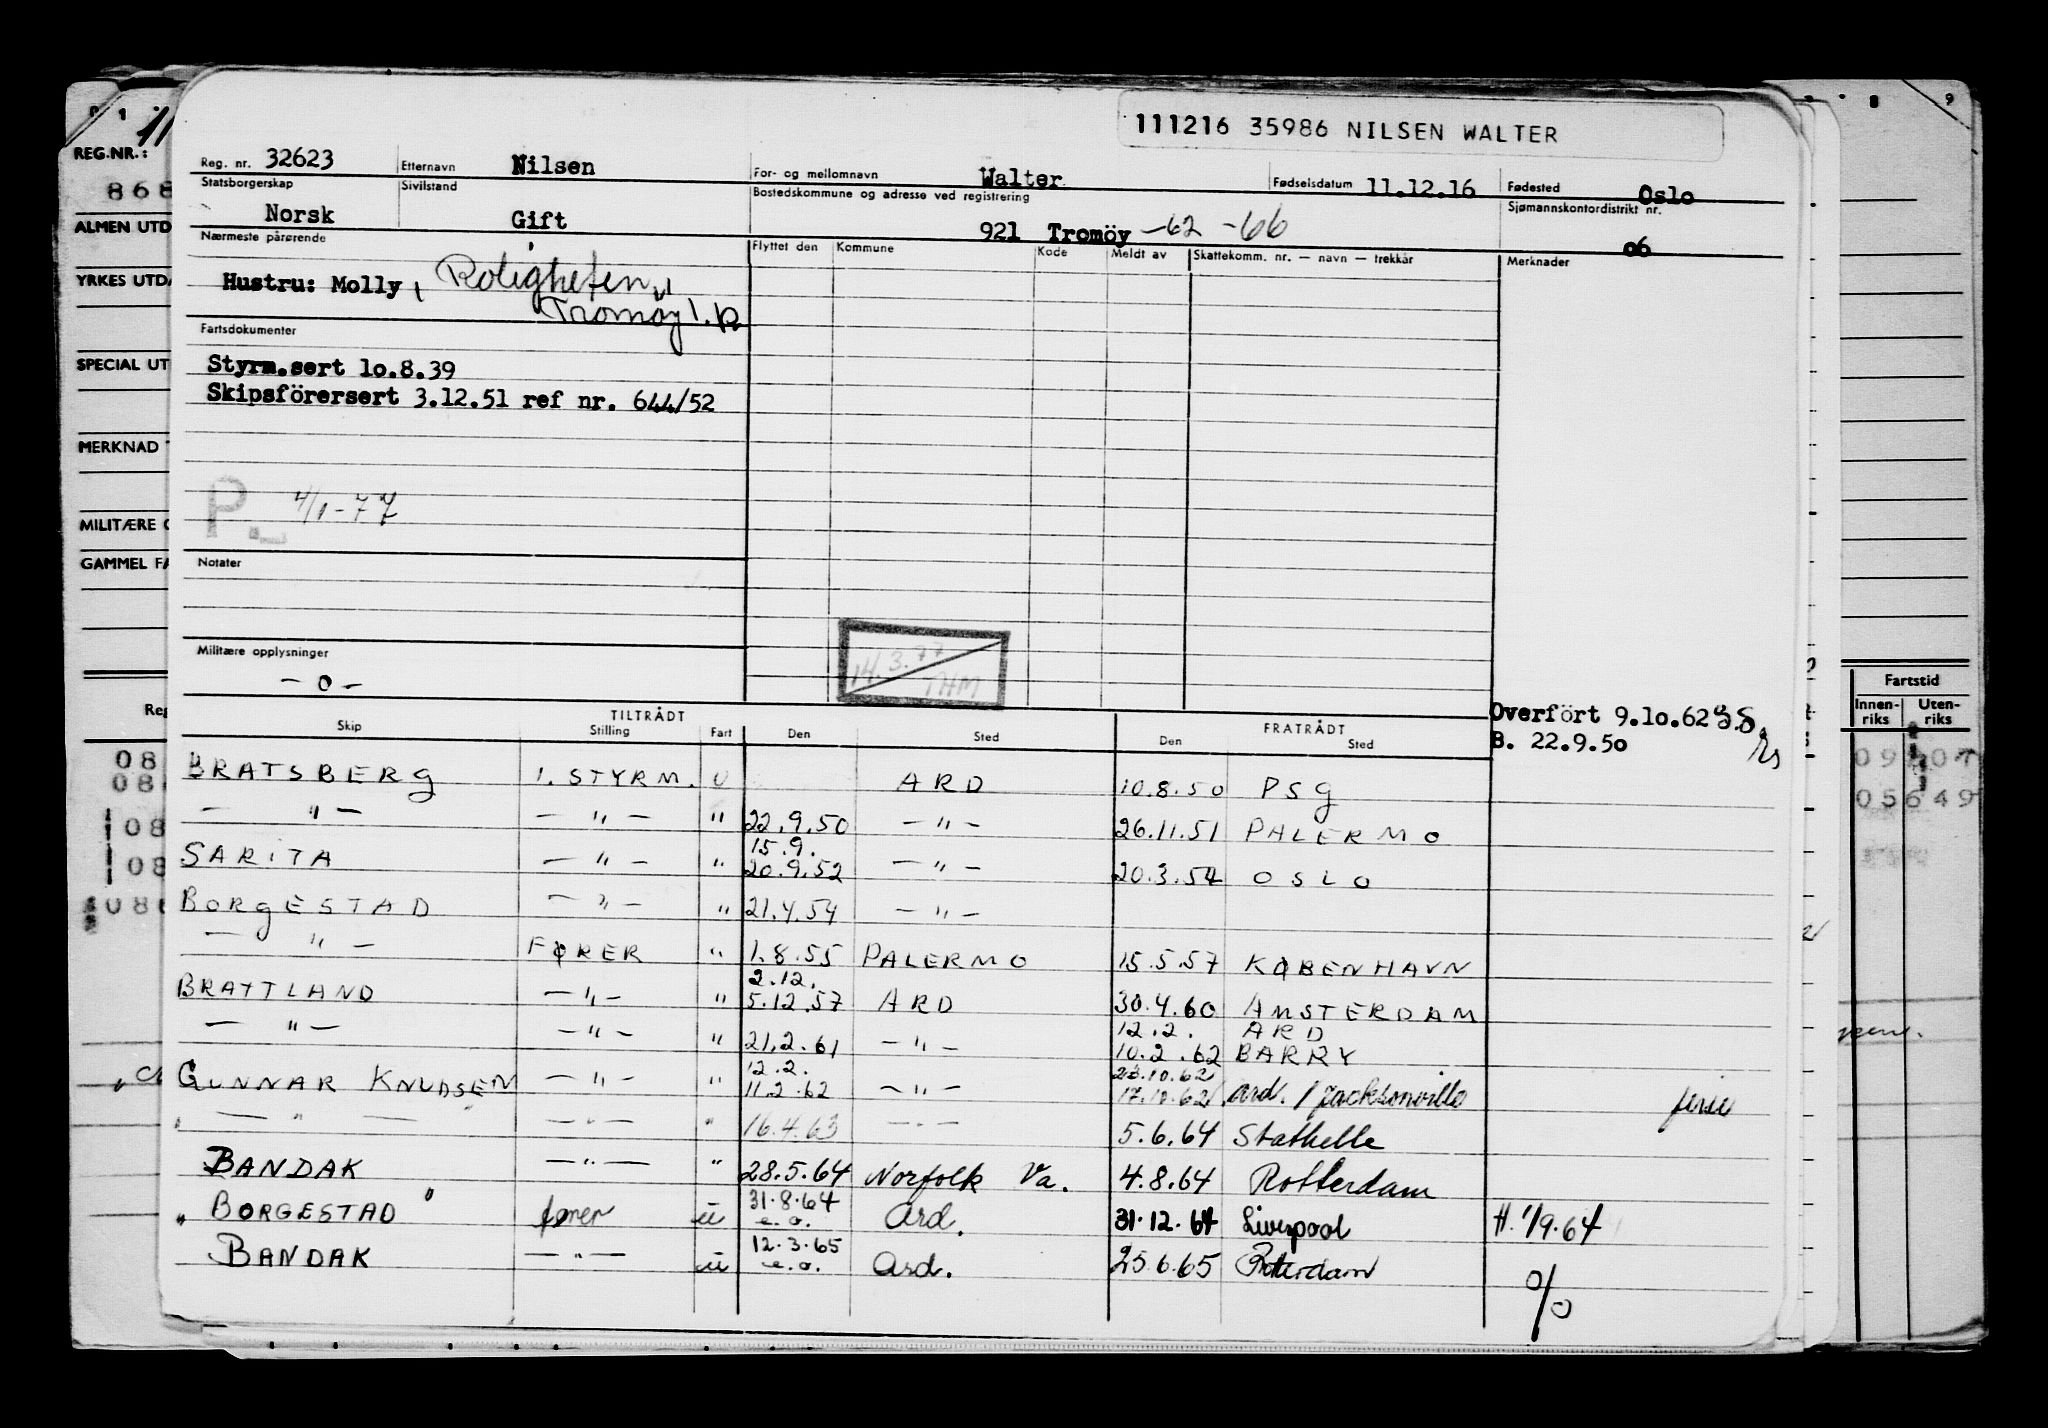 111216 35986 NILSEN WALTER
Reg. nr. 32623 Etternavn Nilsen For- og mellomnavn Walter Fødselsdatum 11.12.16 Fødested Oslo
Statsborgerskap Norsk Sivilstand Gift Bostedskommune og adresse ved registrering 921 Tromöy -62 -66 Sjømannskontordistrikt nr. o6
Nærmeste pårørende Flyttet den Kommune Kode Meldt av Skattekomm. nr. — navn — trekkår Merknader
Hustru: Molly, Roligheten,
Tromöy 1. b
Fartsdokumenter
Styrm.sert 1o.8.39
Skipsförersert 3.12.51 ref nr. 644/52
P. 4/1-77
Notater
14.3.77
THM
Militære opplysninger
- o -
Overfört 9.1o.62
B. 22.9.5o
TILTRÅDT FRATRÅDT
Skip Stilling Fart Den Sted Den Sted
BRATSBERG 1. STYRM. U ARD 10.8.50 PSG
— " — — " — " 22.9.50 — " — 26.11.51 PALERMO
15.9.
SARITA — " — " 20.9.52 — " — 20.3.54 OSLO
BORGESTAD — " — " 21.4.54 — " —
— " — FØRER " 1.8.55 PALERMO 15.5.57 KØBENHAVN
2.12.
BRATTLAND — " — " 5.12.57 ARD 30.4.60 AMSTERDAM
12.2. ARD
— " — — " — " 21.2.61 — " — 10.2.62 BARRY
12.2. 23.10.62
GUNNAR KNUDSEN — " — " 11.2.62 — " — 17.10.62 ard. / Jacksonville ferie
— " — — " — " 16.4.63 — " — 5.6.64 Stathelle
BANDAK — " — " 28.5.64 Norfolk Va. 4.8.64 Rotterdam
31.8.64
" BORGESTAD fører u e.o. Ard. 31.12.64 Liverpool H. 1/9.64
12.3.65
BANDAK — " — u e.o. Ard. 25.6.65 Rotterdam
o/o
REG.NR.:
868
ALMEN UTD
YRKES UTDA
SPECIAL UT
MERKNAD
MILITÆRE
GAMMEL FA
Reg
08
08
08
08
08
Fartstid
Innen-
riks
Uten-
riks
05649